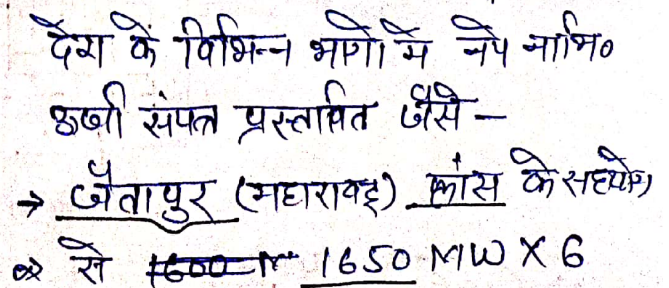 देश के विभिन्न भागो में नये नाभि०
ऊर्जा संयत्र प्रस्तावित जैसे –
→ जैतापुर (महाराष्ट्र) फ्रांस के सहयोग
से 1600 M 1650 MW X 6